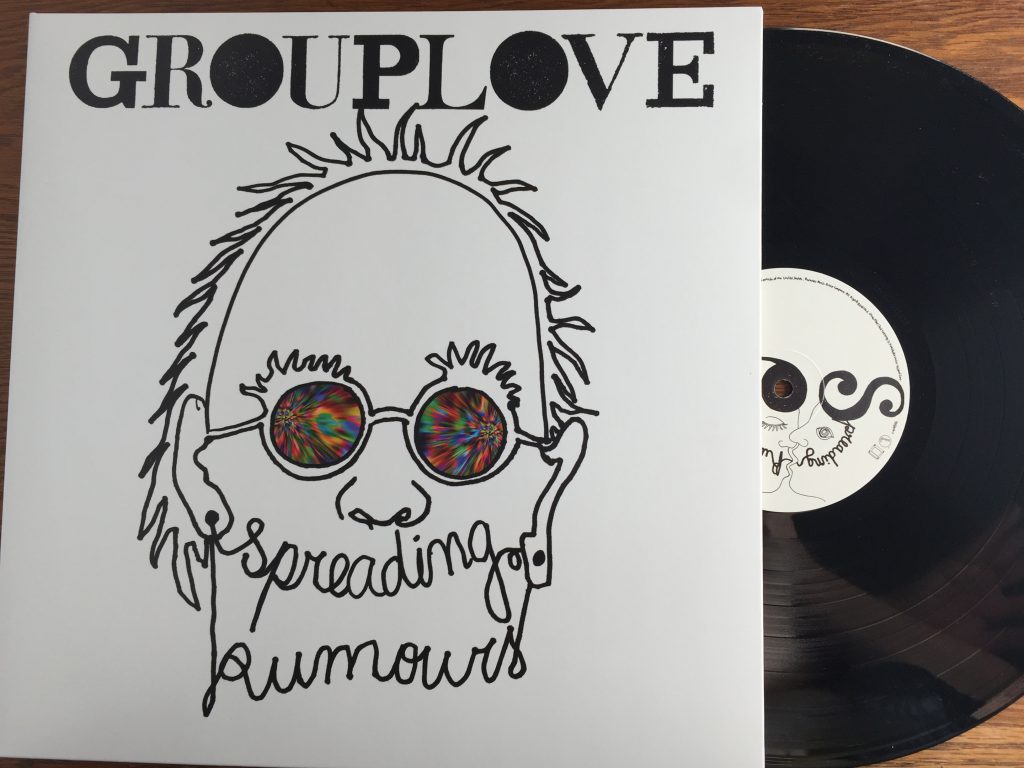 GROUPLOVE
Spreading
Rumours
Spreading